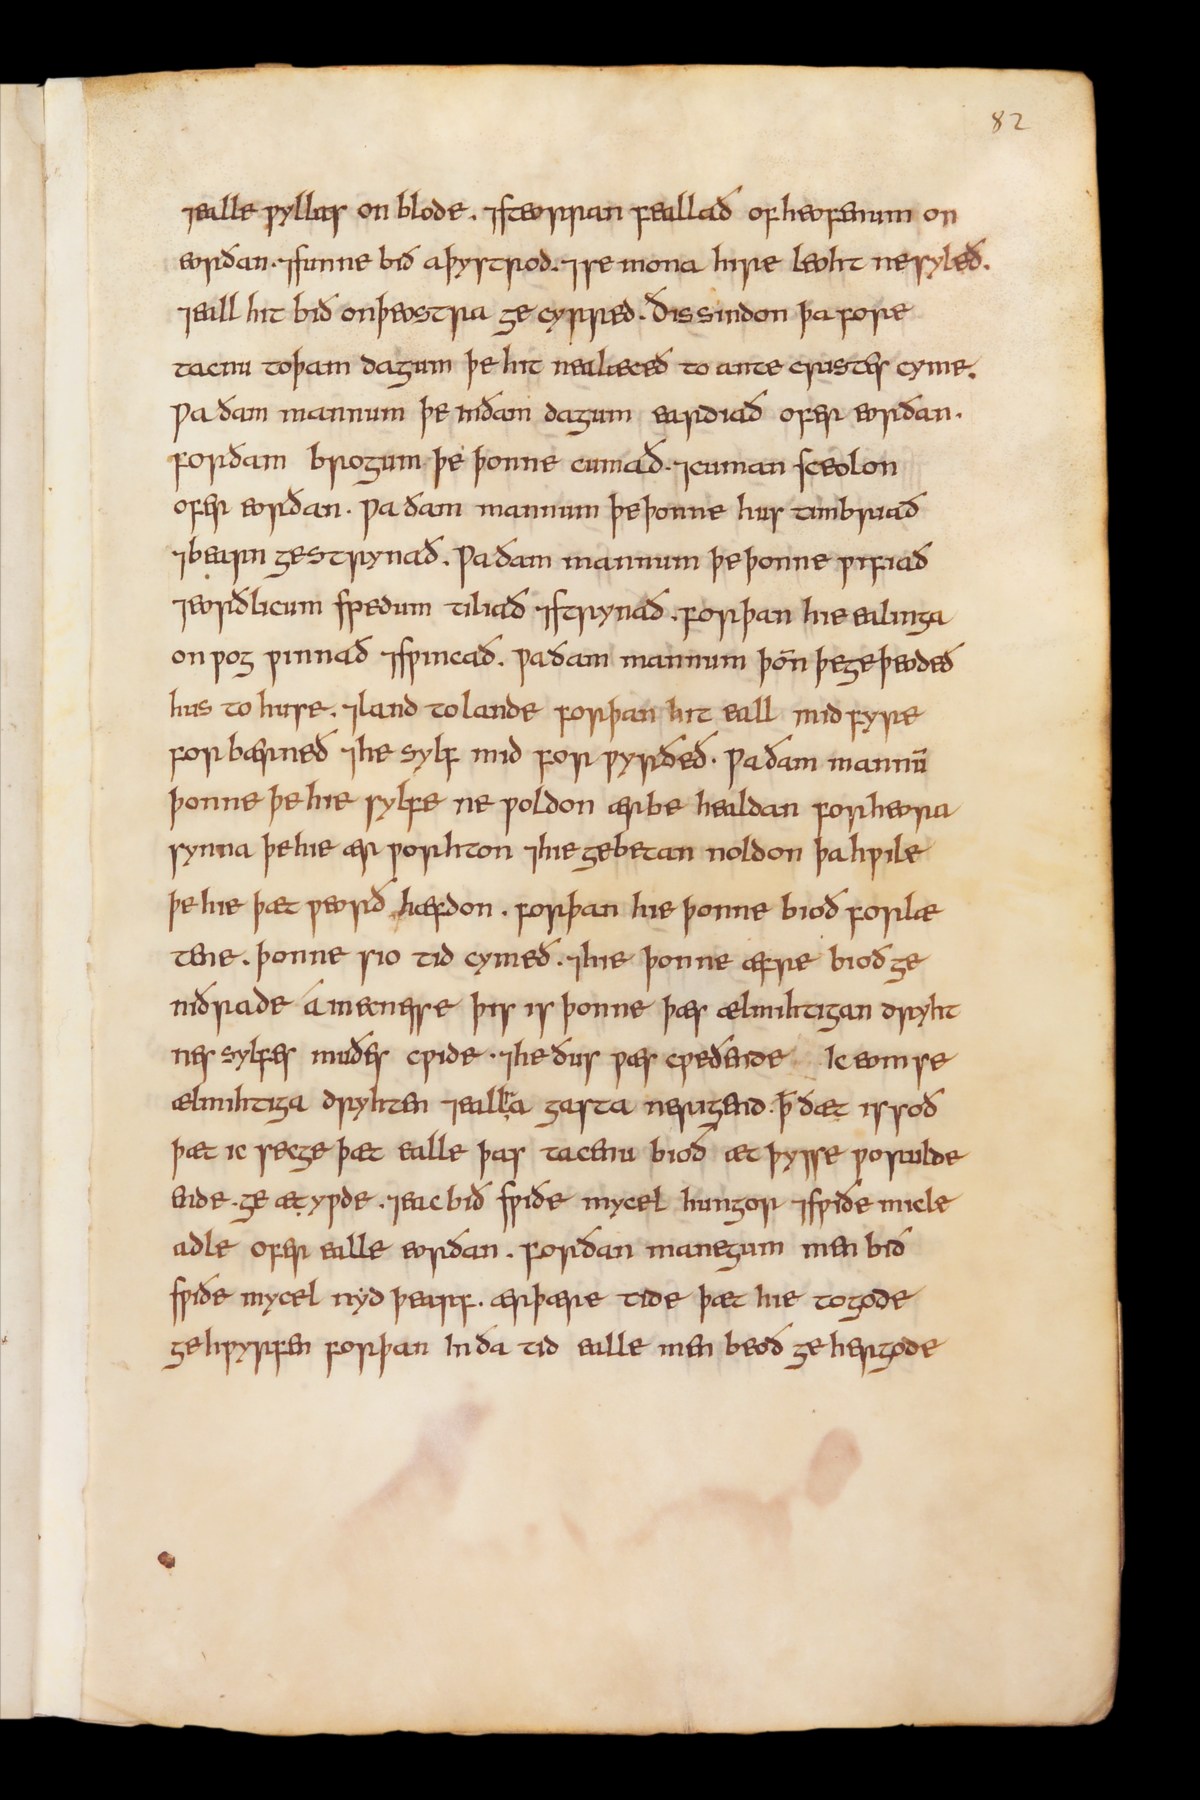 82
⁊ ealle ƿyllas on blode. ⁊ steorran feallað of heofenum on
eorðan. ⁊ sunne bið aþystrod. ⁊ se mona hire leoht ne syleð.
⁊ eall hit bið on þeostra ge cyrred. Ðis sindon þa fore
tacnu to þam dagum þe hit nealæceð to ante cristes cyme.
Ƿa ðam mannum þe in ðam dagum eardiað ofer eorðan.
for ðam brogum þe þonne cumað. ⁊ cuman sceolon
ofer eorðan. Ƿa ðam mannum þe þonne hus timbriað
⁊ bearn gestrynað. Ƿa ðam mannum þe þonne ƿifiað
⁊ eorðlicum spedum tiliað ⁊ strynað. for þan hie ealinga
on ƿog ƿinnað ⁊ sƿincað. Ƿa ðam mannum þoñ þe geþeodeð
hus to huse. ⁊ land to lande for þan hit eall mid fyre
for bærneð ⁊ he sylf mid for ƿyrðeð. Ƿa ðam mannū
þonne þe hie sylfe ne ƿoldon ær be healdan for heora
synna þe hie ær ƿorhton ⁊ hie gebetan noldon þa hƿile
þe hie þæt ƿeorð hæfdon. for þan hie þonne bioð forlæ
tene. þonne sio tid cymeð. ⁊ hie þonne æfre bioð ge
niðrade á in ecnesse þis is þonne þæs ælmihtigan dryht
nes sylfes muðes cƿide. ⁊ he ðus ƿæs cƿeðende Ic eom se
ælmihtiga dryhten ⁊ eallra gasta nerigend. ꝥ ðæt is soð
þæt ic secge þæt ealle þas tacenu bioð æt þysse ƿorulde
ende. ge æt yƿde. ⁊ eac bið sƿiðe mycel hungor ⁊ sƿiðe micle
adle ofer ealle eorðan. for ðan manegum men bið
sƿiðe mycel nyd þearf. ær þære tide þæt hie to gode
gehƿyrfen for þan In ða tid ealle men beoð ge hergode